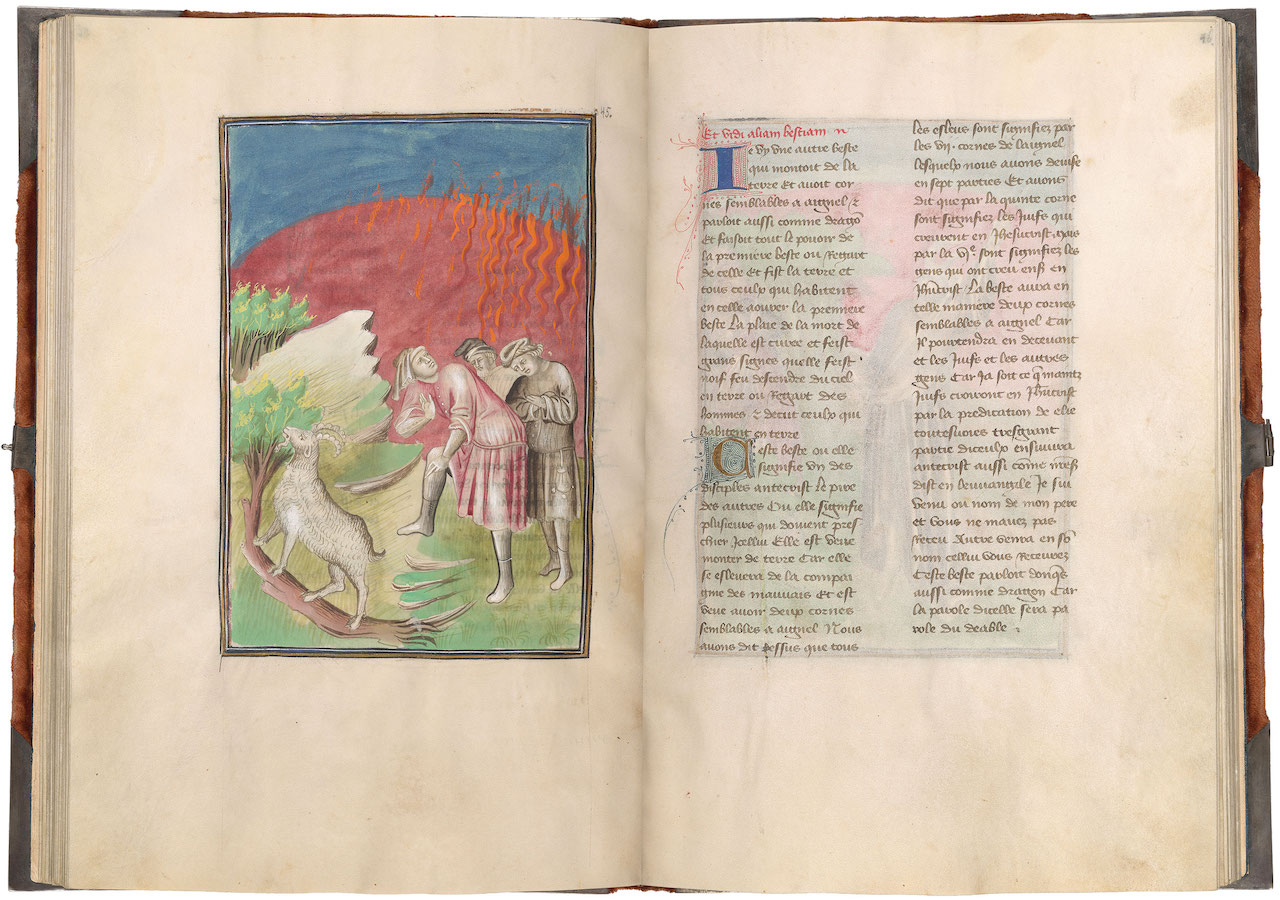 45.
46
Et vidi aliam bestiam
Ie vy vne autre beste
qui montoit de la
terre Et auoit cor
nes semblables a aignel &
parloit aussi comme dragon
Et faisoit tout le pouoir de
la premiere beste ou regart
de celle Et fist la terre et
tous ceulx qui habitent
en celle aourer la premiere
beste La plaie de la mort de
laquelle est curee et feist
grans signes quelle feist
feu descendre du ciel
en terre ou regart des
hommes & deceut ceulx qui
habitent en terre
Ceste beste ou elle
signifie vn des
disciples antecrist le pire
des autres Ou elle signifie
plusieurs qui doiuent pres
chier icellui Elle est veue
monter de terre Car elle
se esleuera de la compai
gnie des mauuais Et est
veue auoir deux cornes
semblables a aignel Nous
auons dit dessus que tous
les esleus sont signifiez par
les vii. cornes de laignel
lesquelx nous auons deuise
en sept parties Et auons
dit que par la quinte corne
sont signifiez les Iuifs qui
creurent en Ihesucrist, mais
par la vie. sont signifiez les
gens qui ont creu en
Ihucrist La beste aura en
telle maniere deux cornes
semblables a aignel Car
il pourtendra en deceuant
et les Iuifs et les autres
gens Car ja soit ce q mantz
Iuifs croiront en Ihucrist
par la predication de elie
toutesuoies tresgrant
partie diceulx ensuiura
antecrist aussi come
dist en leuuangile Ie sui
venu ou nom de mon pere
et vous ne mauez pas
receu Autre venra en so
nom cellui vous receurez
Ceste beste parloit donqs
aussi comme dragon Car
la parole dicelle sera pa
role du deable